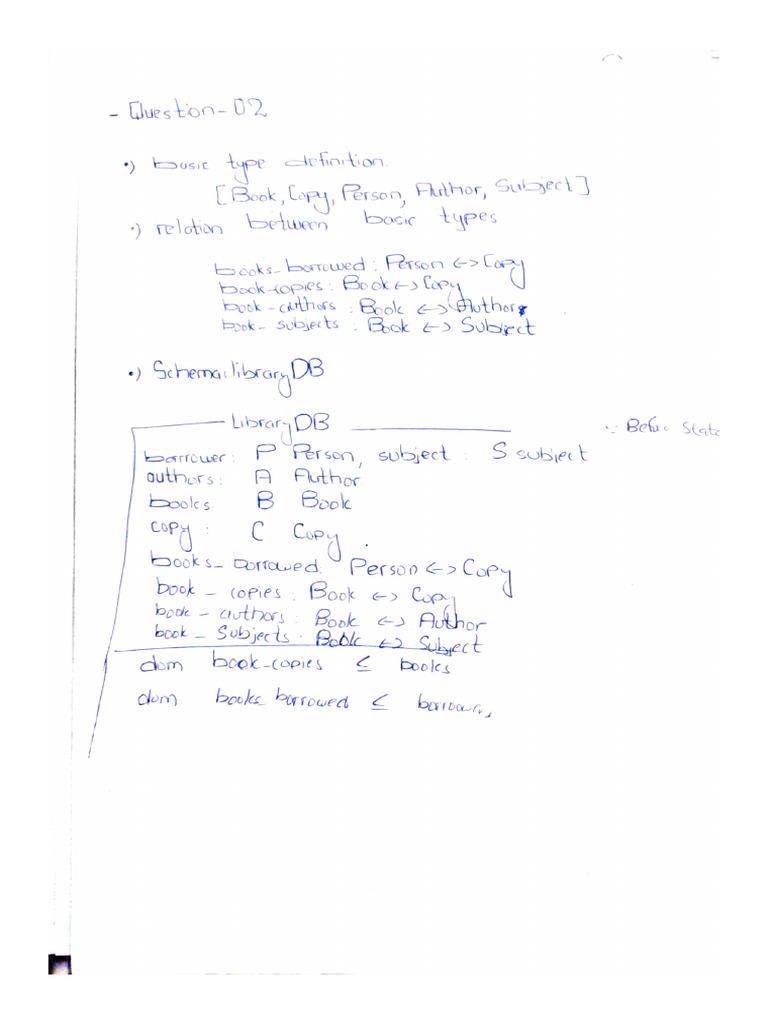 - Question-02
•) basic type definition.
[Book, Copy, Person, Author, Subject]
•) relation between basic types
books_borrowed : Person <-> Copy
book-copies : Book <-> Copy
book-authors : Book <-> Author
book- subjects : Book <-> Subject
•) Schema: libraryDB
LibraryDB
∵ Before State
borrower : P Person, subject : S subject
authors : A Author
books B Book
copy : C Copy
books_borrowed : Person <-> Copy
book - copies : Book <-> Copy
book - authors : Book <-> Author
book - Subjects : Book <-> Subject
dom book-copies ⊆ books
dom books_borrowed ⊆